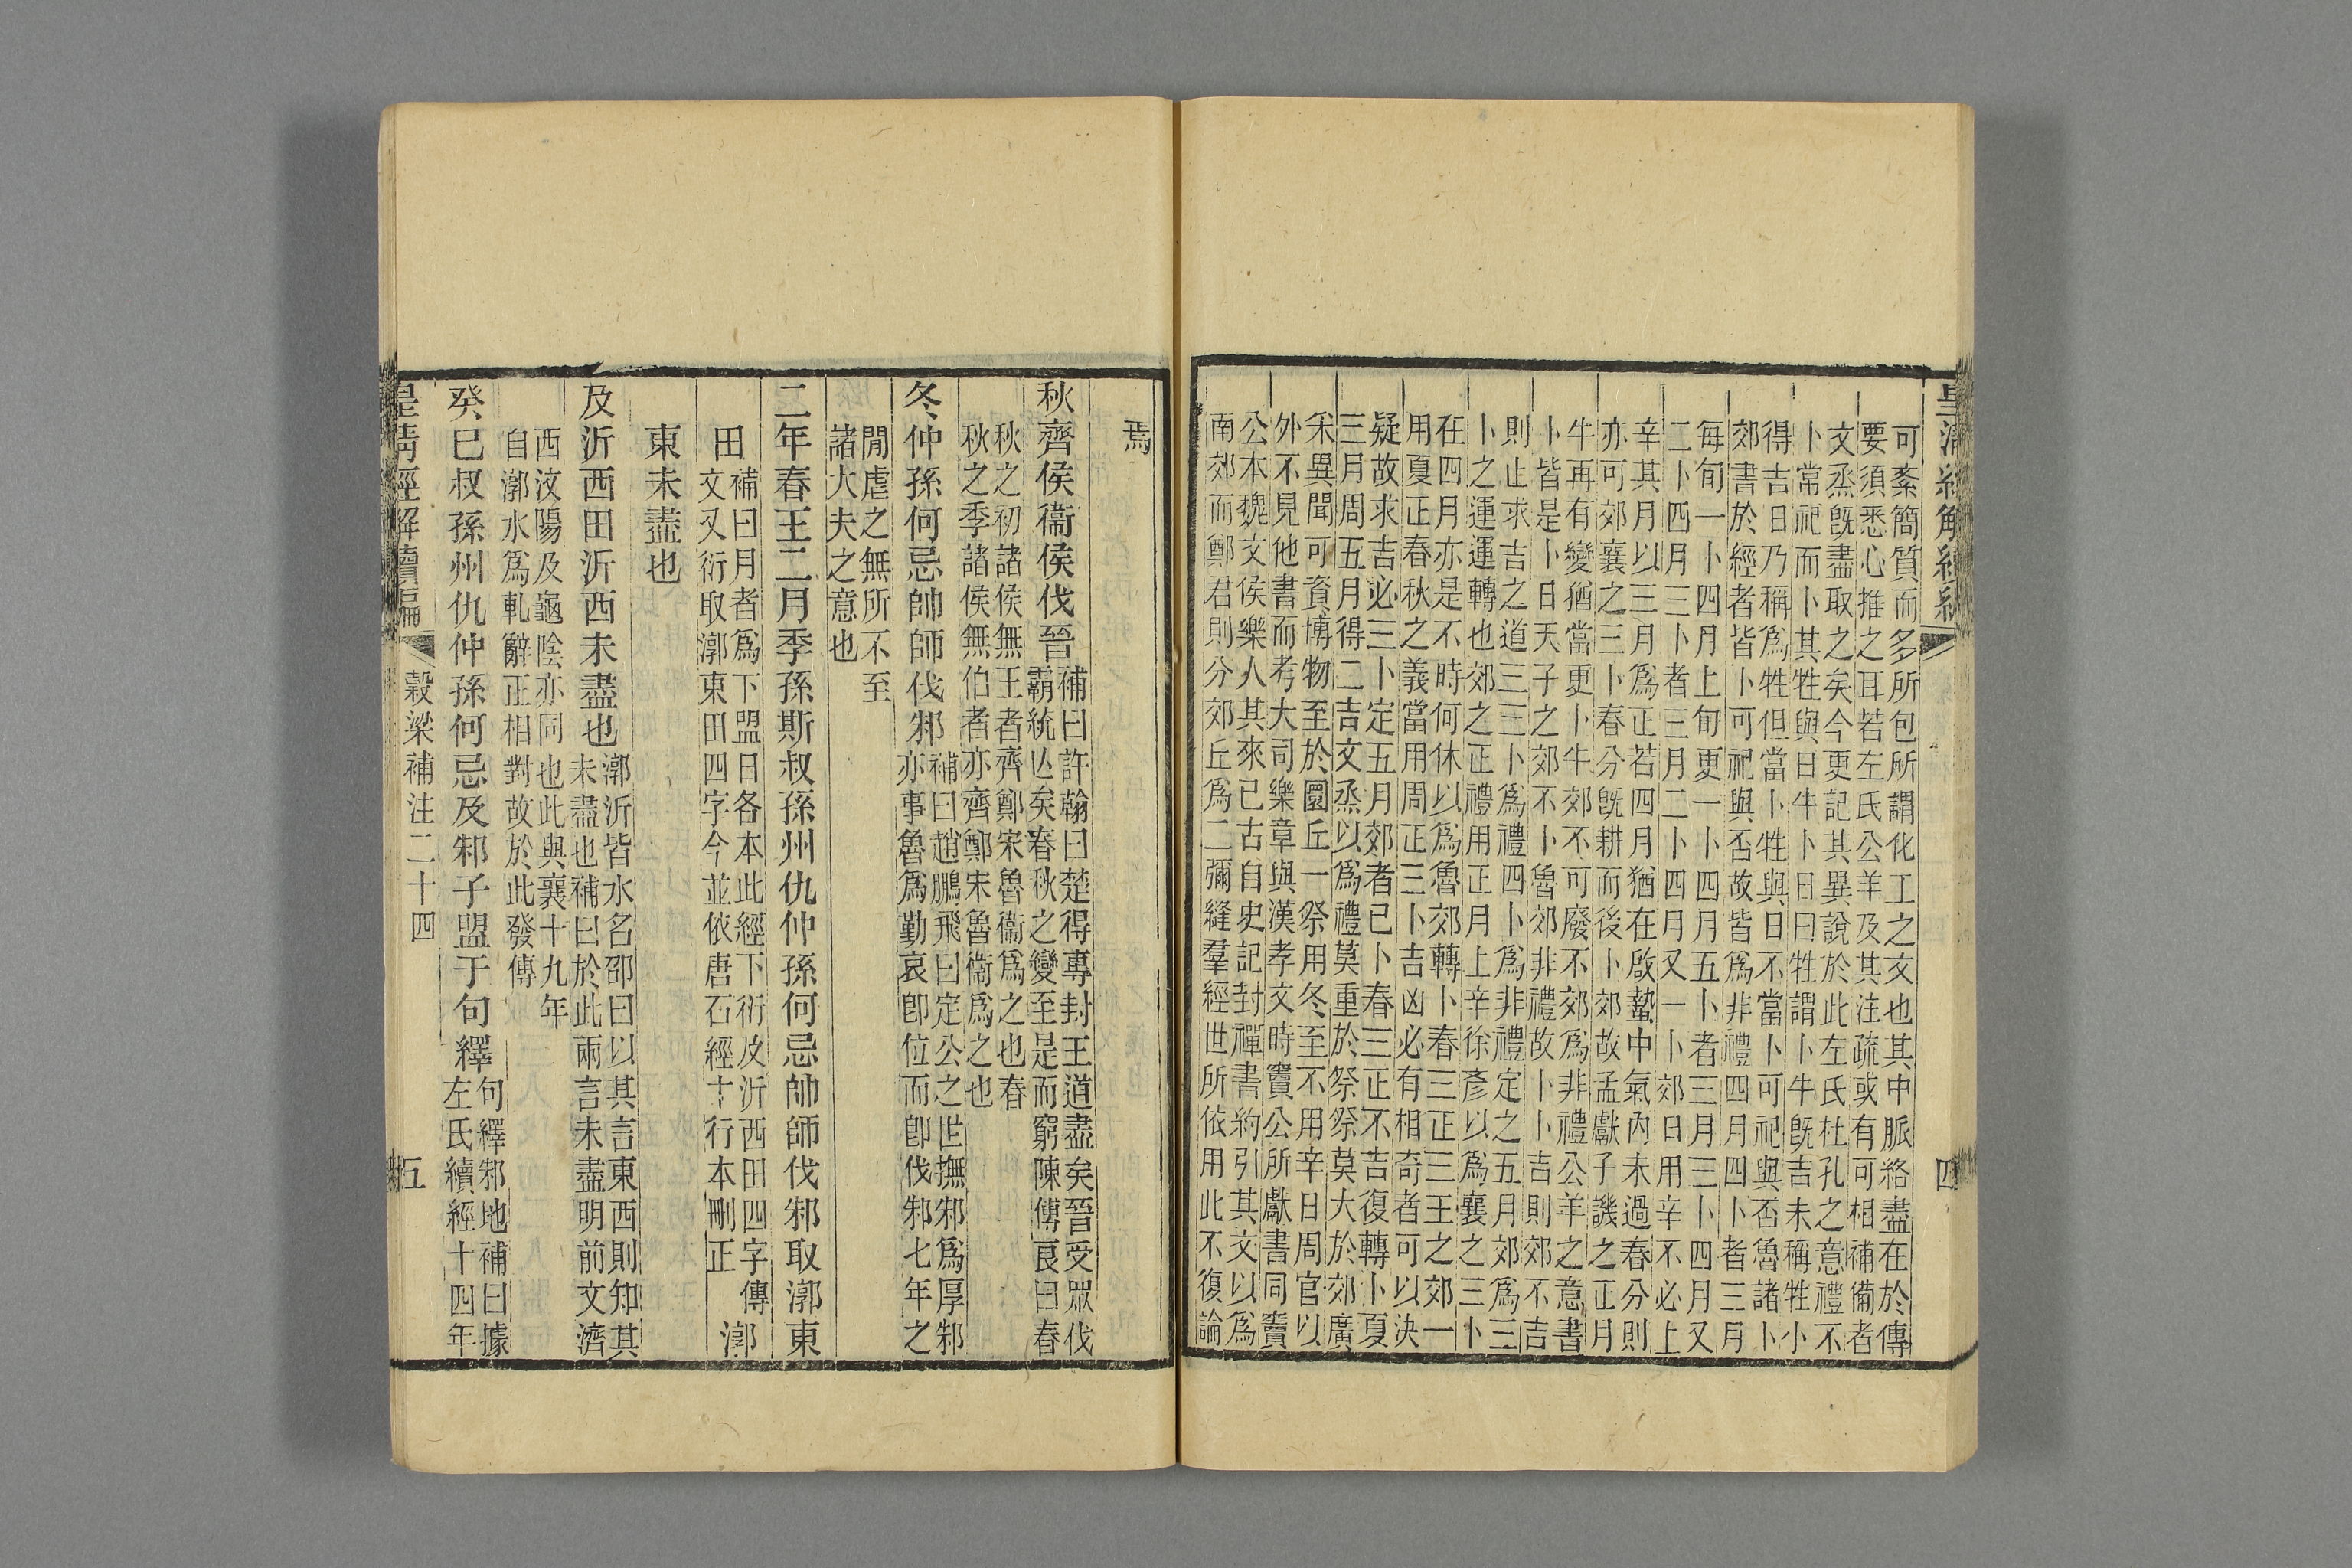 皇清經解續編 四
可紊簡質而多所包所謂化工之文也其中脈絡盡在於傳
要須悉心推之耳若左氏公羊及其注疏或有可相補備者
文烝既盡取之矣今更記其異說於此左氏杜孔之意禮不
卜常祀而卜其牲與日牛卜日曰牲謂卜牛既吉未稱牲小
得吉日乃稱爲牲但當卜牲與日不當卜可祀與否魯諸卜
郊書於經者皆卜可祀與否故皆爲非禮四月四卜者三月
每旬一卜四月上旬更一卜四月五卜者三月三卜四月又
二卜四月三卜者三月二卜四月又一卜郊日用辛不必上
辛其月以三月爲正若四月猶在啟蟄中氣內未過春分則
亦可郊襄之三卜春分既耕而後卜郊故孟獻子譏之正月
牛再有變猶當更卜牛郊不可廢不郊爲非禮公羊之意書
卜皆是卜日天子之郊不卜魯郊非禮故卜卜吉則郊不吉
則止求吉之道三三卜爲禮四卜爲非禮定之五月郊爲三
卜之運運轉也郊之正禮用正月上辛徐彥以爲襄之三卜
在四月亦是不時何休以爲魯郊轉卜春三正三王之郊一
用夏正春秋之義當用周正三卜吉凶必有相奇者可以決
疑故求吉必三卜定五月郊者已卜春三正不吉復轉卜夏
三月周五月得二吉文烝以爲禮莫重於祭祭莫大於郊廣
采異聞可資博物至於圜丘一祭用冬至不用辛日周官以
外不見他書而考大司樂章與漢孝文時竇公所獻書同竇
公本魏文侯樂人其來已古自史記封禪書約引其文以爲
南郊而鄭君則分郊丘爲二彌縫羣經世所依用此不復論
焉
秋齊侯衞侯伐晉補曰許翰曰楚得專封王道盡矣晉受眾伐
霸統亾矣春秋之變至是而窮陳傅良曰春
秋之初諸侯無王者齊鄭宋魯衞爲之也春
秋之季諸侯無伯者亦齊鄭宋魯衞爲之也
冬仲孫何忌帥師伐邾補曰趙鵬飛曰定公之世撫邾爲厚邾
亦事魯爲勤哀卽位而卽伐邾七年之
閒虐之無所不至
諸大夫之意也
二年春王二月季孫斯叔孫州仇仲孫何忌帥師伐邾取漷東
田補曰月者爲下盟日各本此經下衍及沂西田四字傳
文又衍取漷東田四字今並依唐石經十行本刪正 漷
東未盡也
及沂西田沂西未盡也漷沂皆水名邵曰以其言東西則知其
未盡也補曰於此兩言未盡明前文濟
西汶陽及龜陰亦同也此與襄十九年
自漷水爲軋辭正相對故於此發傳
癸巳叔孫州仇仲孫何忌及邾子盟于句繹句繹邾地補曰據
左氏續經十四年
皇清經解續編 穀梁補注二十四 五